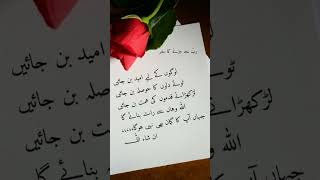 لوگوں کے لیے امید بن جائیں
ٹوٹے دلوں کا حوصلہ بن جائیں
لڑکھڑاتے قدموں کی ہمت بن جائیں
اللہ وہاں سے راستہ بنائے گا
جہاں آپ کا گمان بھی نہیں ہوگا۔۔۔۔
ان شاء اللہ